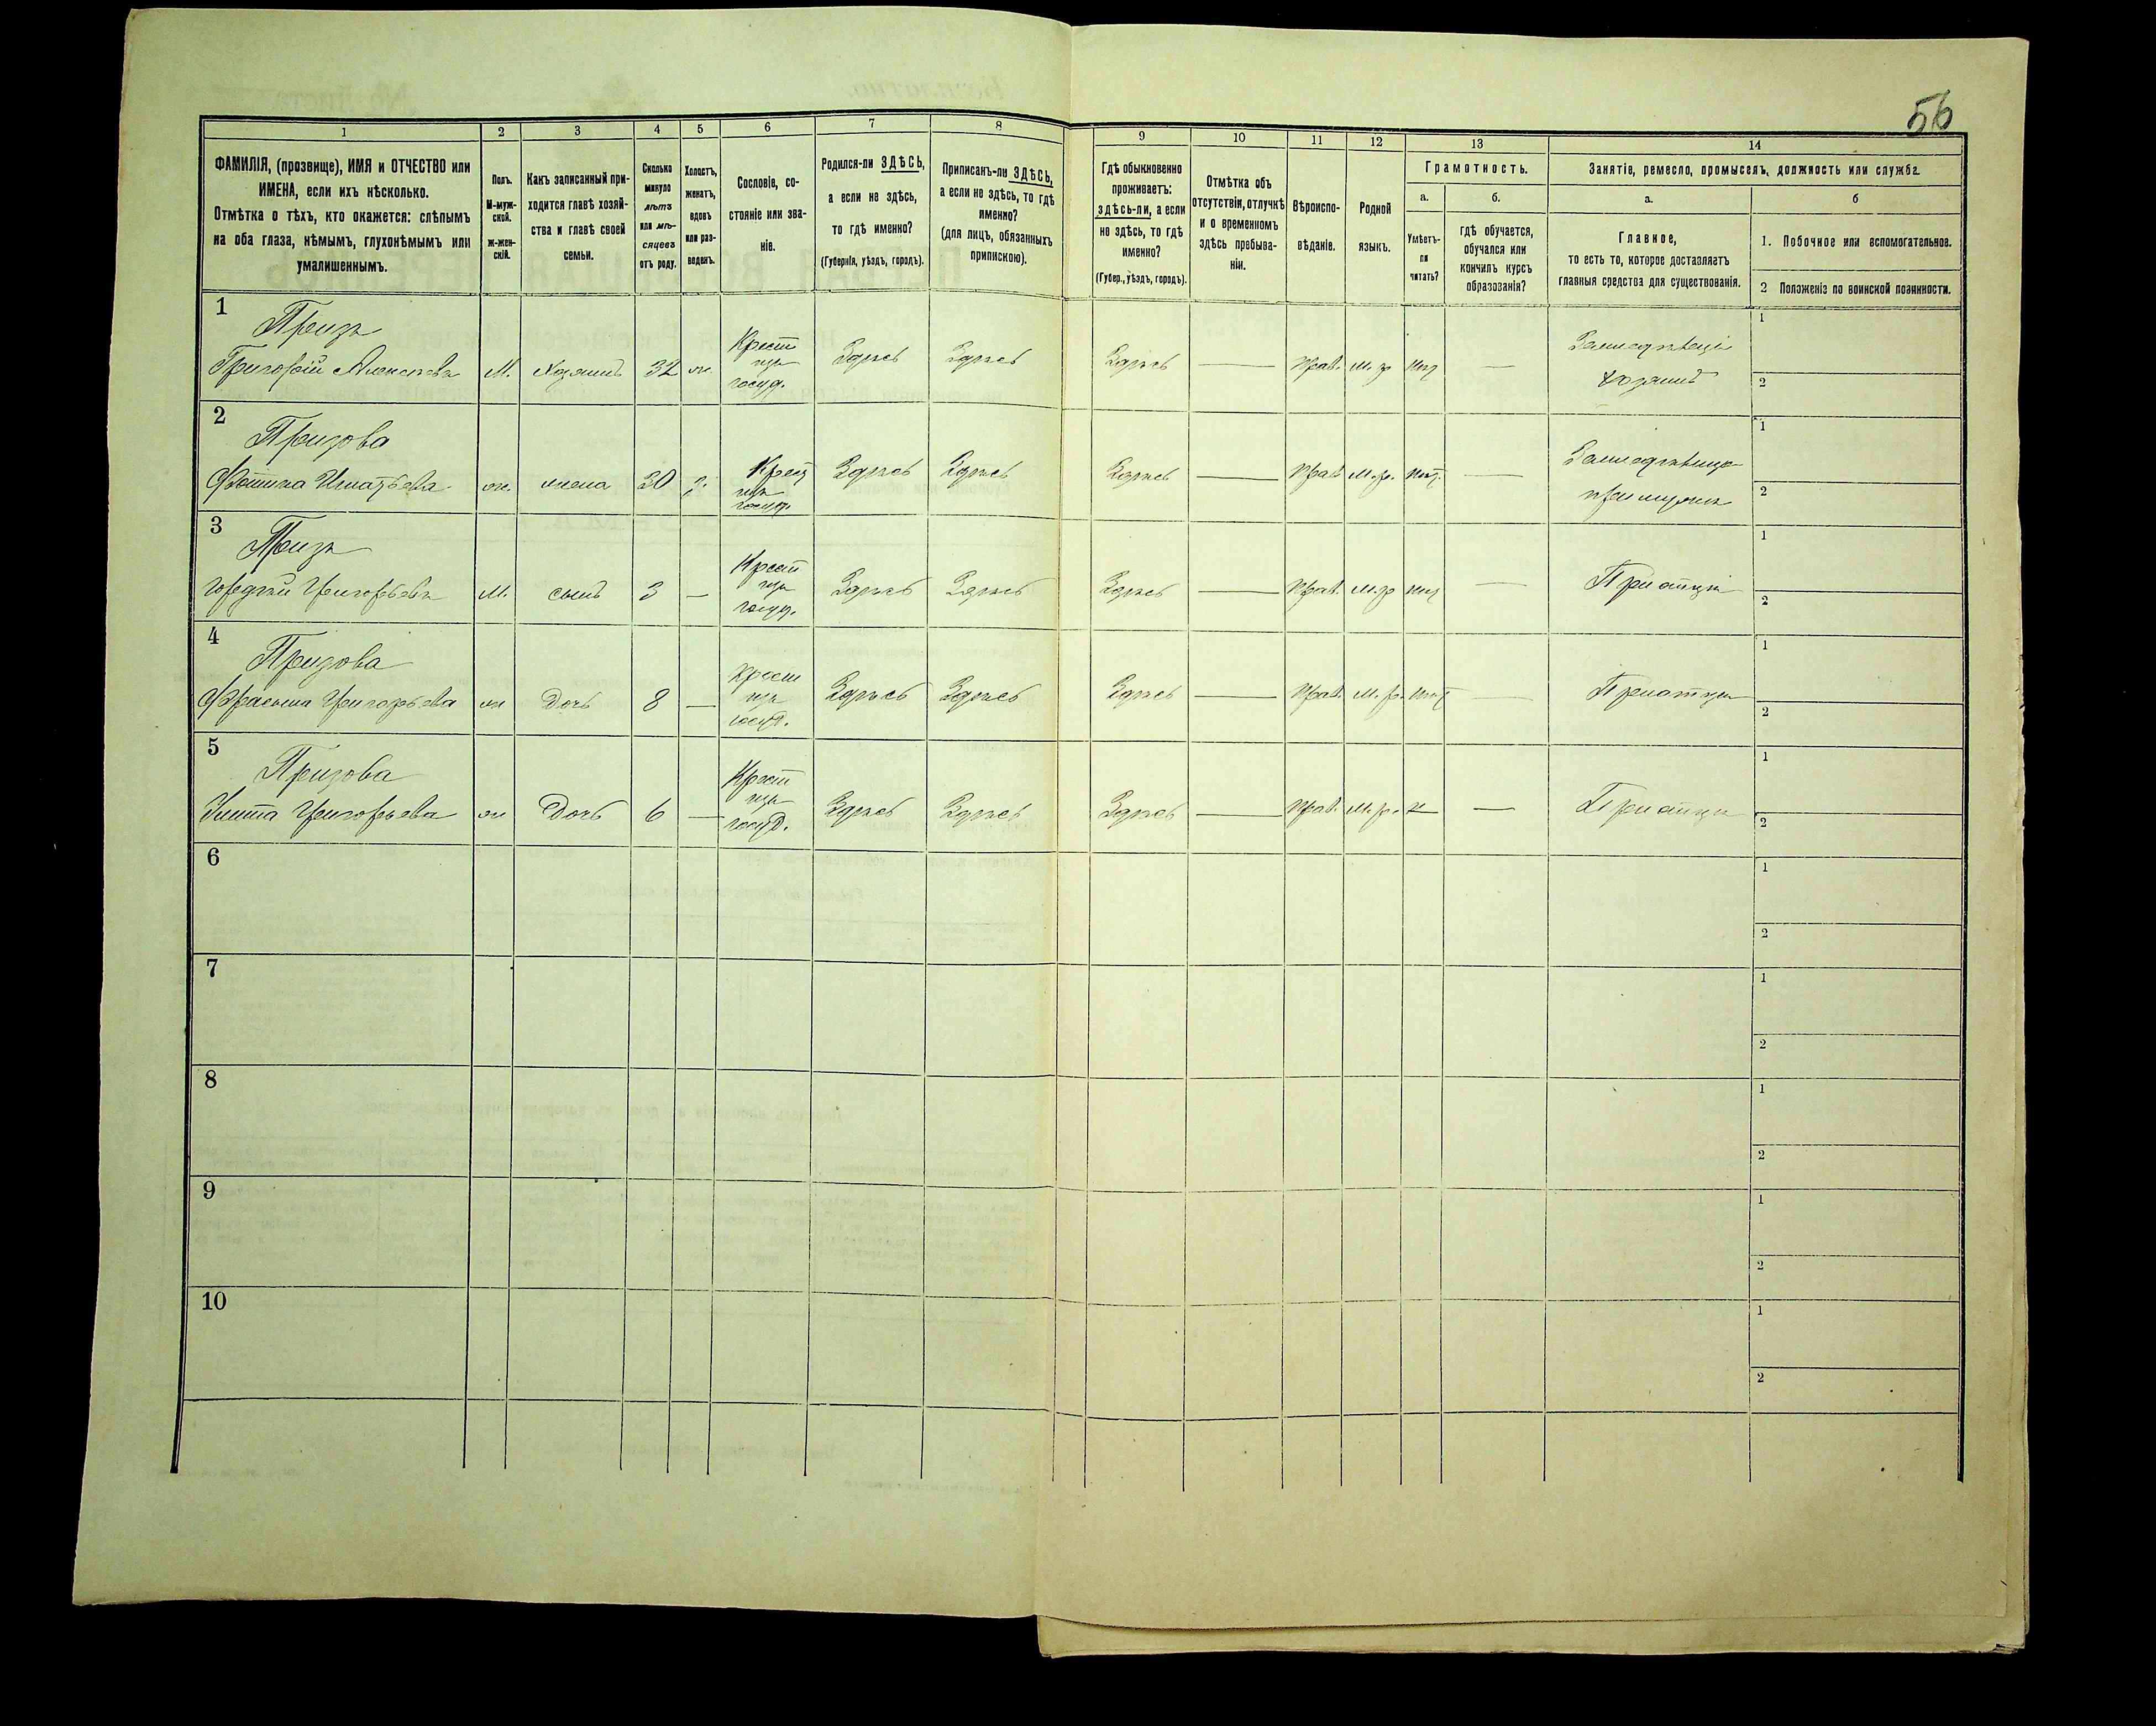 56
1 2 3 4 5 6 7 8 9 10 11 12 13 14
ФАМИЛІЯ, (прозвище), ИМЯ и ОТЧЕСТВО или
ИМЕНА, если ихъ нѣсколько.
Отмѣтка о тѣхъ, кто окажется: слѣпымъ
на оба глаза, нѣмымъ, глухонѣмымъ или
умалишеннымъ.
Полъ.
М-муж-
ской.
ж-жен-
скій.
Какъ записанный при-
ходится главѣ хозяй-
ства и главѣ своей
семьи.
Сколько
минуло
лѣтъ
или мѣ-
сяцевъ
отъ роду.
Холостъ,
женатъ,
вдовъ
или раз-
веденъ.
Сословіе, со-
стояніе или зва-
ніе.
Родился-ли ЗДѢСЬ,
а если не здѣсь,
то гдѣ именно?
(Губернія, уѣздъ, городъ).
Приписанъ-ли ЗДѢСЬ,
а если не здѣсь, то гдѣ
именно?
(для лицъ, обязанныхъ
припискою).
Гдѣ обыкновенно
проживаетъ:
здѣсь-ли, а если
не здѣсь, то гдѣ
именно?
(Губер., уѣздъ, городъ).
Отмѣтка объ
отсутствіи, отлучкѣ
и о временномъ
здѣсь пребыва-
ніи.
Вѣроиспо-
вѣданіе.
Родной
языкъ.
Грамотность.
а.
Умѣетъ-
ли
читать?
б.
гдѣ обучается,
обучался или
кончилъ курсъ
образованія?
Занятіе, ремесло, промыселъ, должность или служба.
а.
Главное,
то есть то, которое доставляетъ
главныя средства для существованія.
б
1. Побочное или вспомогательное.
2 Положеніе по воинской повинности.
1
Призъ
Григорій Алексѣевъ М. Хозяинъ 32 ж. Крест изъ госуд. Здѣсь Здѣсь Здѣсь — Прав. м. р нѣт — Земледѣлецъ
хозяинъ
1
2
2
Призова
Фотина Игнатьева ж. жена 30 з. Крест изъ госуд. Здѣсь Здѣсь Здѣсь — Прав. м. р. нѣт. —
при мужѣ
1
2
3
Призъ
Григорьевъ М. сынъ 3 — Крест изъ госуд. Здѣсь Здѣсь Здѣсь — Прав. м. р нѣт — При отцѣ
1
2
4
Призова
Григорьева ж Дочь 8 — Крест изъ госуд. Здѣсь Здѣсь Здѣсь — Прав. м. р. нѣт — При отцѣ
1
2
5
Призова
Григорьева ж Дочь 6 — Крест изъ госуд. Здѣсь Здѣсь Здѣсь — Прав. м. р. н — При отцѣ
1
2
6
1
2
7
1
2
8
1
2
9
1
2
10
1
2